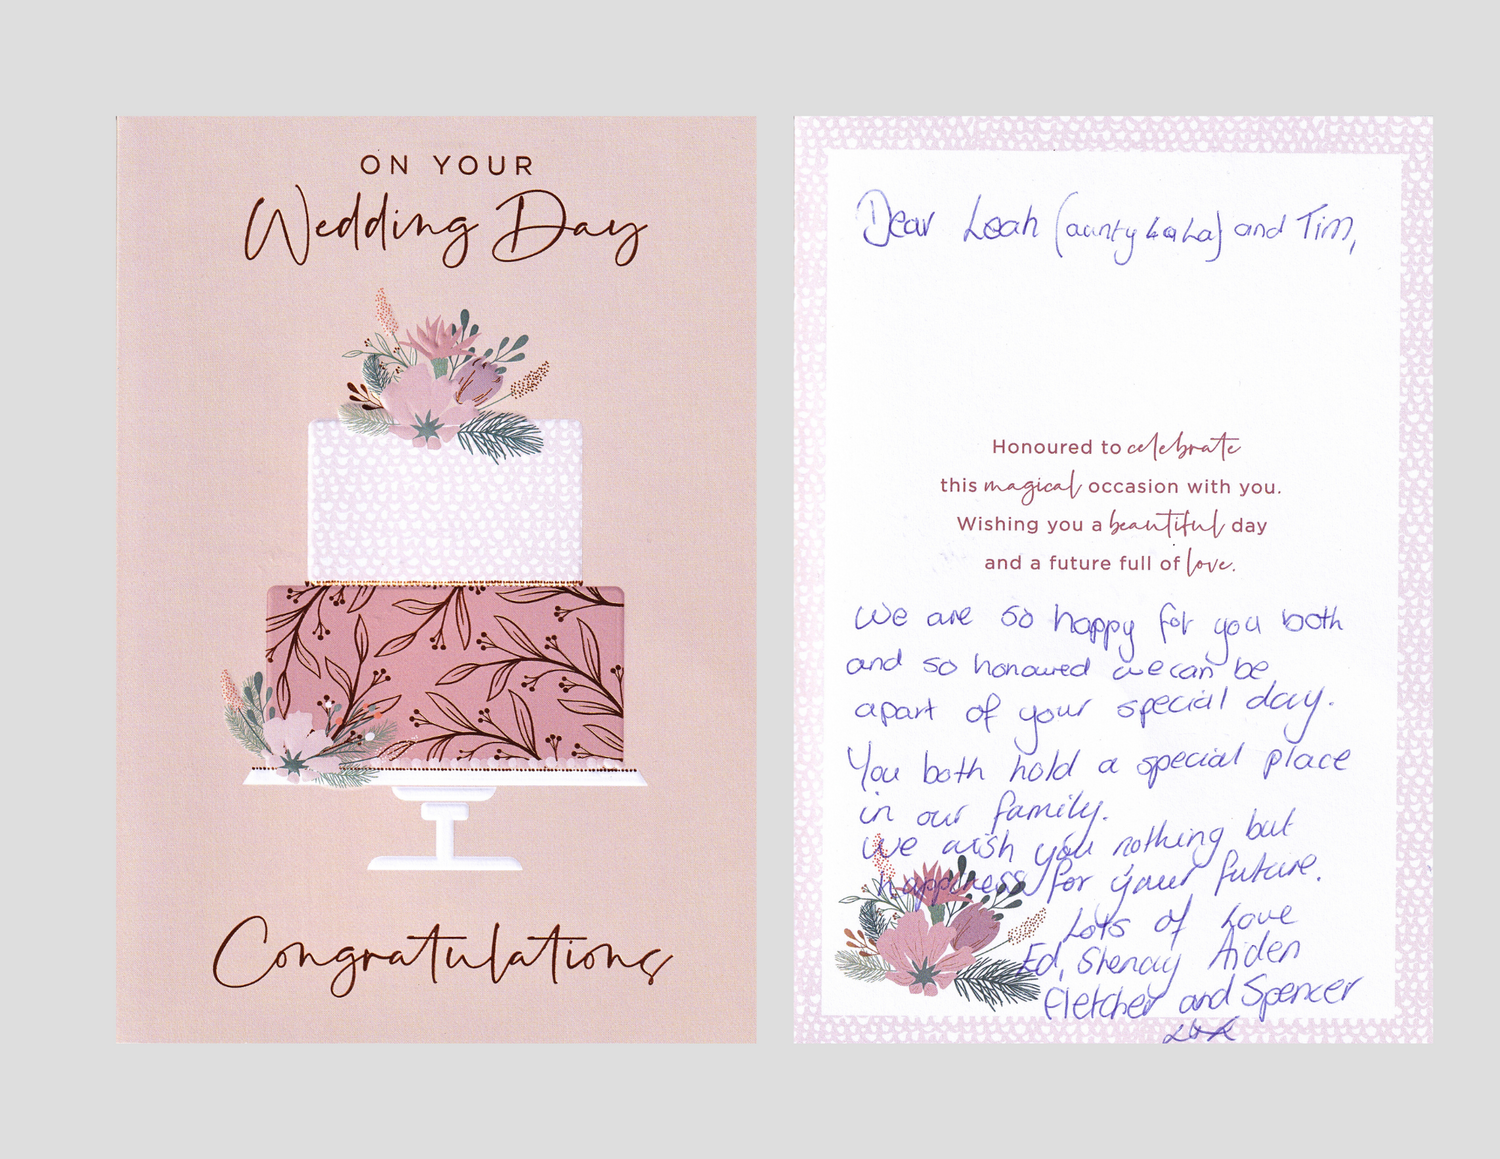 ON YOUR
Wedding Day
Congratulations
Dear Leah (aunty LaLa) and Tim,
Honoured to celebrate
this magical occasion with you.
Wishing you a beautiful day
and a future full of love.
We are so happy for you both
and so honoured we can be
apart of your special day.
You both hold a special place
in our family.
We wish you nothing but
happiness for your future.
Lots of Love
Ed, Shenay Aiden
Fletcher and Spencer